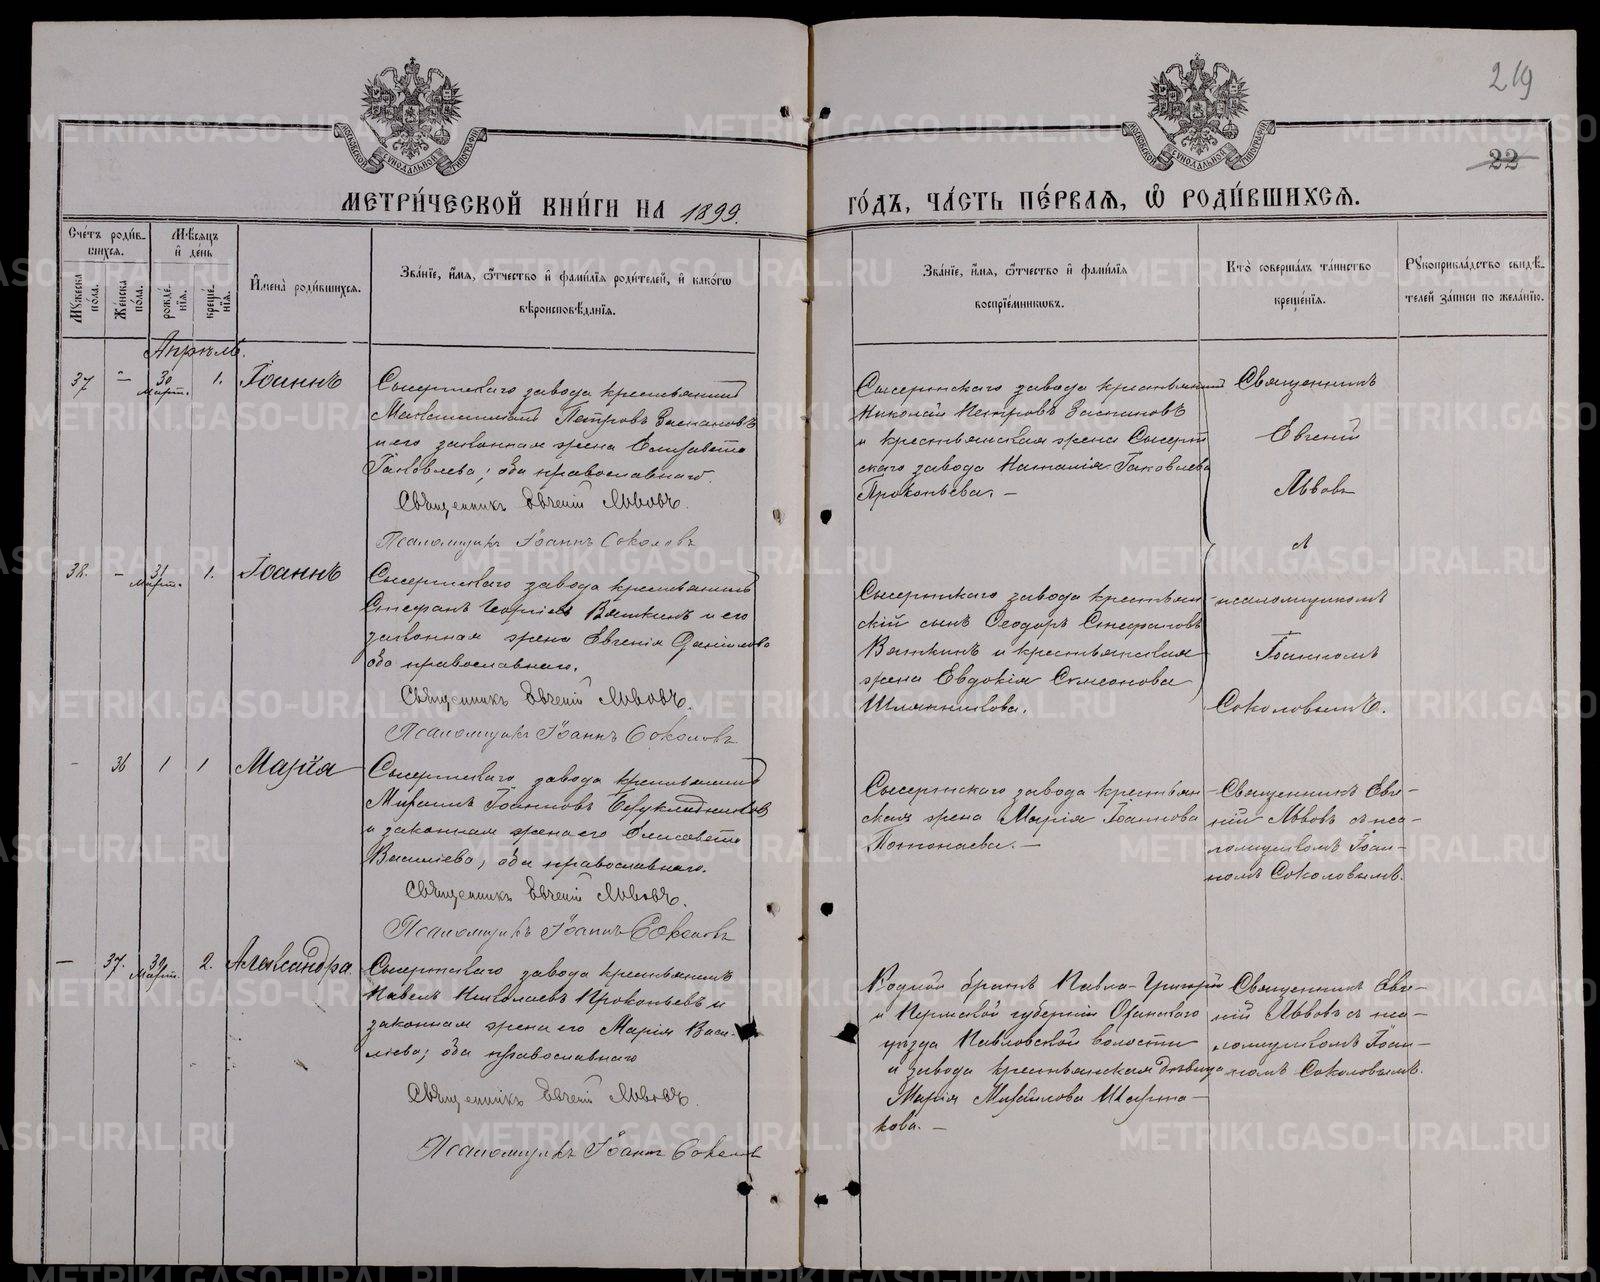 219
22
МОСКОВСКОЙ СѴНОДАЛЬНОЙ ТИПОГРАФІИ
МОСКОВСКОЙ СѴНОДАЛЬНОЙ ТИПОГРАФІИ
МЕТРИ́ЧЕСКОЙ КНИ́ГИ НА 1899.
ГО́ДЪ, ЧА́СТЬ ПЕ́РВАѦ, Ѽ РОДИ́ВШИХСѦ.
Сче́тъ роди́в-
шихсѧ.
Мꙋжеска по́ла.
Же́нска по́ла.
Мѣ́сѧцъ и҆ де́нь
рожде́нїѧ.
креще́нїѧ.
И҆мена̀ роди́вшихсѧ.
Зва́нїе, и҆́мѧ, ѻ҆́тчество и҆ фами́лїѧ роди́телей, и҆ како́гѡ
вѣроисповѣ́данїѧ.
Зва́нїе, и҆́мѧ, ѻ҆́тчество и҆ фами́лїѧ
воспрїе́мникѡвъ.
Кто̀ соверша́лъ та́инство
креще́нїѧ.
Рꙋкоприкла́дство свидѣ́-
телей за́писи по жела́нїю.
Апрѣль.
37 – 30 Март. 1. Іоаннъ
Сысертскаго завода крестьянинъ
Максимиліанъ Петровъ
и его законная жена Елизавета
Іаковлева; оба православнаго.
Священникъ Евгеній Львовъ.
Псаломщикъ Іоаннъ Соколовъ
Сысертскаго завода крестьянинъ
Николай Петровъ
и крестьянская жена Сысерт
скаго завода Наталія Іаковлева
Прокопьева. –
Священникъ
Евгеній
Львовъ
съ
псаломщикомъ
Іоанномъ
Соколовымъ.
38. – 31 Март. 1. Іоаннъ
Сысертскаго завода крестьянинъ
Стефанъ Георгіевъ Вяткинъ и его
законная жена Евгенія Даніилова
оба православнаго.
Священникъ Евгеній Львовъ.
Псаломщикъ Іоаннъ Соколовъ
Сысертскаго завода крестьян-
скій сынъ Ѳеодоръ Стефановъ
Вяткинъ и крестьянская
жена Евдокія Симеонова
– 36 1 1 Марія
Сысертскаго завода крестьянинъ
Іоанновъ
и законная жена его Елисавета
Василіева; оба православнаго.
Священникъ Евгеній Львовъ.
Псаломщикъ Іоаннъ Соколовъ
Сысертскаго завода крестьян
ская жена Марія Іоаннова
–Священникъ Евге-
ній Львовъ съ пса-
ломщикомъ Іоан-
номъ Соколовымъ.
– 37. 30 Март. 2. Александра
Сысертскаго завода крестьянинъ
Павелъ Николаевъ Прокопьевъ и
законная жена его Марія Васи-
ліева; оба православнаго
Священникъ Евгеній Львовъ.
Псаломщикъ Іоаннъ Соколовъ
Родной братъ Павла – Григорій
и Пермской губерніи Оханскаго
уѣзда Павловской волости
и завода крестьянская дѣвица
Марія Михайлова
кова. –
Священникъ Евге-
ній Львовъ съ пса-
ломщикомъ Іоан-
номъ Соколовымъ.
METRIKI.GASO-URAL.RU